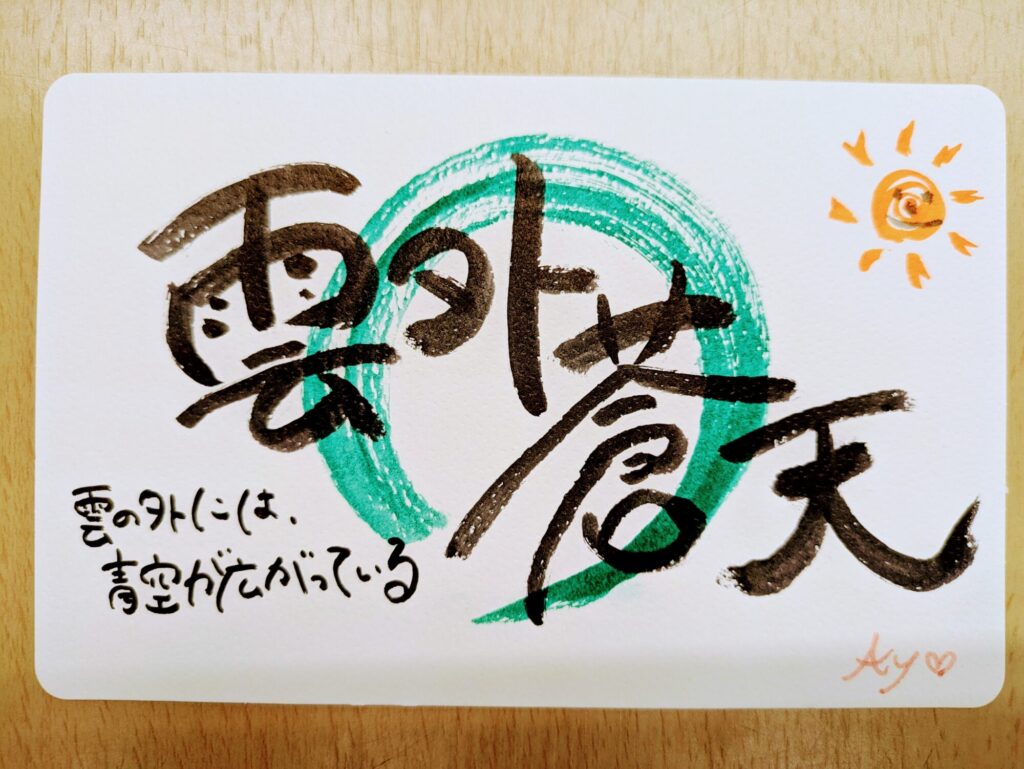 雲外蒼天
雲の外には、
青空が広がっている
Ay♡